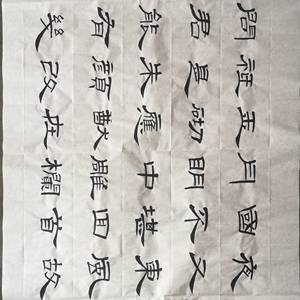 夜又東風故
國不堪回首
月明中雕欄
玉砌應猶在
祇是朱顏改
問君能有幾